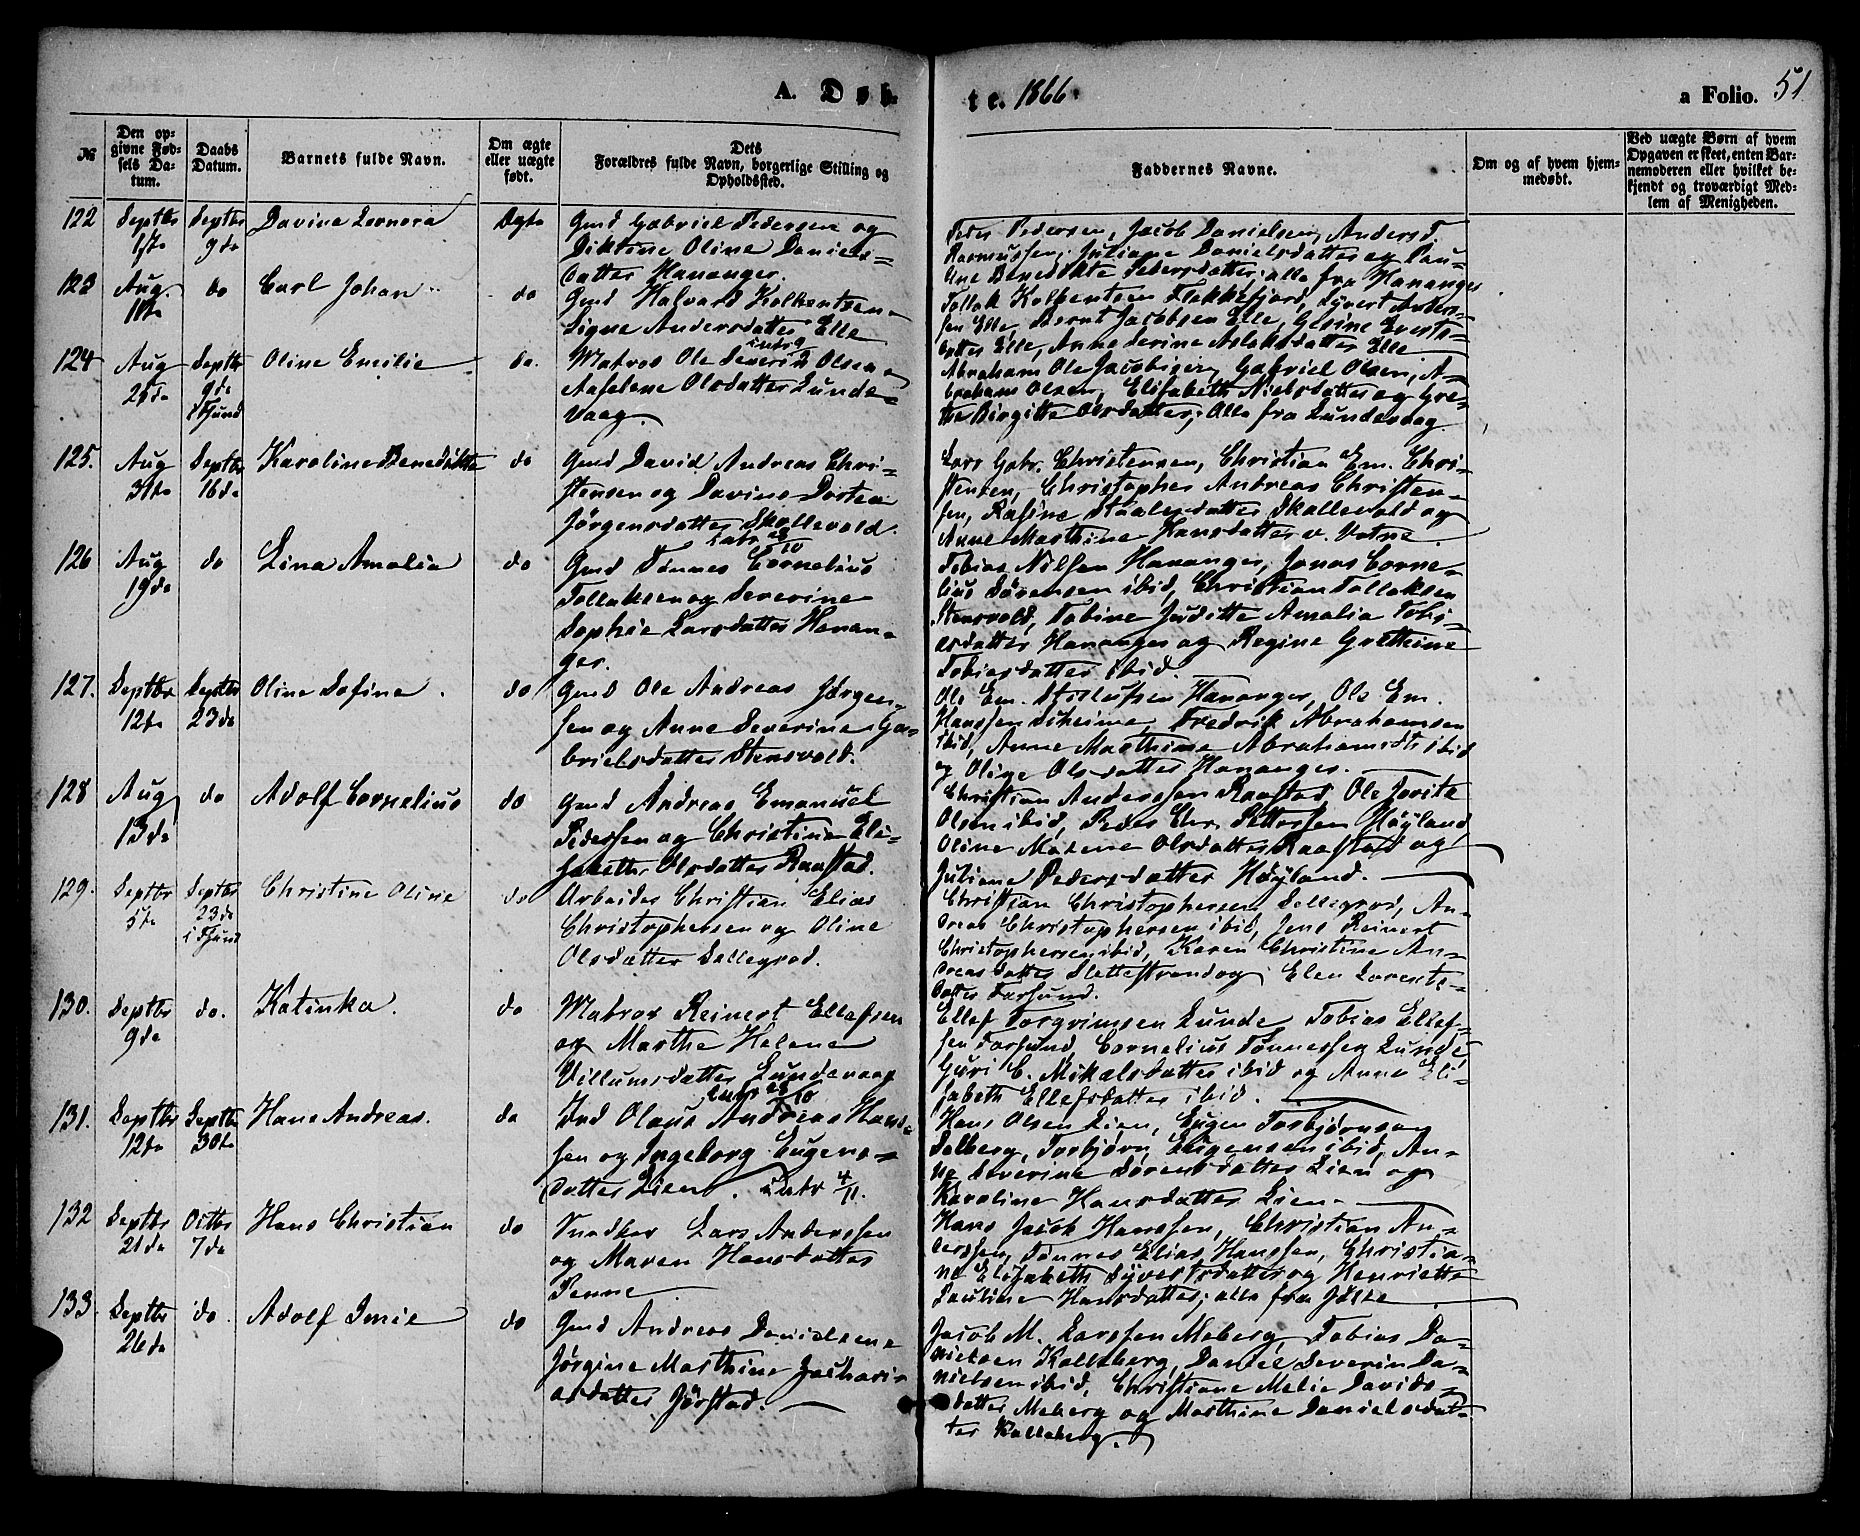 A. Døb-
te. 1866.
a Folio. 51
№
Den op-
givne Fød-
sels Da-
tum.
Daabs
Datum.
Barnets fulde Navn.
Om ægte
eller uægte
født.
Dets
Forældres fulde Navn, borgerlige Stilling og
Opholdssted.
Faddernes Navne.
Om og af hvem hjem-
medøbt.
Ved uægte Børn af hvem
Opgaven er skeet, enten Bar-
nemoderen eller hvilket be-
kjendt og troværdigt Med-
lem af Menigheden.
122
Septbr
1ste
Septbr
9de
Davine Leonora
Ægte
Gmd Gabriel Pedersen og
Diktine Oline Daniels-
datter Hananger.
Peder Pedersen, Jacob Danielsen, Anders T.
Rasmussen, Juliane Danielsdatter og Pau-
line Benedikte Pedersdatter; alle fra Hananger
123
Aug.
10de
do
Carl Johan
do
Gmd Halvard Kolbentsen
Signe Andersdatter Elle
Tollak Kolbentsen Flekkefjord, Syvert Ander-
sen Elle, Bernt Jacobsen Elle, Gesine Everts-
datter Elle, Anne Serine Aslaksdatter Elle
124
Aug
25de
Septbr
9de
i Fsund
Oline Emilie
do.
Matros Ole Severin Olsen
Aaselene Olsdatter Lunde-
vaag.
Abraham Ole Jacobsen, Gabriel Olsen, A-
braham Olsen, Elisabeth Nielsdatter og Gre-
the Birgitte Olsdatter; Alle fra Lundevaag.
125.
Aug
31te
Septbr
16de
Karoline Benedikte
do
Gmd David Andreas Chri-
stensen og Davine Dortea
Jørgensdatter Skollevold.
Lars Gabr. Christensen, Christian Em. Chri-
stensen, Christopher Andreas Christen-
sen, Rasine Staalesdatter Skallevold og
Anne Marthine Hansdatter v. Vatne
126
Aug
19de
do
Lina Amalia
do
Intr 28/10
Gmd Tønnes Cornelius
Tollaksen og Severine
Sophie Larsdatter Hanan-
ger.
Tobias Nilsen Hananger, Jonas Corne-
lius Sørensen ibid, Christian Tollaksen
Stensvold, Tobine Juditte Amalia Tobi-
asdatter Hananger og Regine Grethine
Tobiasdatter ibid.
127.
Septbr
12te
Septbr
23de
Oline Sofine.
do
Gmd Ole Andreas Jørgen-
sen og Anne Severine Ga-
brielsdatter Stensvold.
Ole Em. Hananger, Ole Em.
Hanssen, Fredrik Abrahamsen
ibid, Anne Marthine Abrahamsdtr ibid
og Oline Olsdatter Hananger.
128
Aug
13de
do
Adolf Cornelius
do
Gmd Andreas Emanuel
Pederssen og Christine Eli-
sabeth Olsdatter Raastad.
Christian Anderssen Raastad, Ole
Olsen ibid, Peder Chr. Pettersen Høyland
Oline Malene Olsdatter Raastad og
Juliane Pedersdatter Høyland.
129.
Septbr
5te
Septbr
23de
i Fsund
Christine Oline
do
Arbeider Christian Elias
Christophersen og Oline
Olsdatter Sellegrod.
Christian Christophersen Sellegrod, An-
dreas Christophersen ibid, Jens Reinert
Christophersen ibid, Karen Christine An-
dreasdatter Slettestrand og Elen Lorents-
datter Farsund.
130.
Septbr
9de
do.
Katinka.
do
Matros Reinert Ellefsen
og Marthe Helene
Villumsdatter Lundevaag
Ellef Torgrimsen Lunde, Tobias Ellef-
sen Farsund, Cornelius Tønnessen Lunde
Guri C. Mikalsdatter ibid og Anne Eli-
sabeth Ellefsdatter ibid.
131.
Septbr
12te
Septbr
30te
Hans Andreas.
do
Intr 28/10
Ind Olaus Andreas Hans-
sen og Ingeborg Eugens-
datter Lien. Intr 4/11.
Hans Olsen Lien, Eugen Torbjørnsen
Dalberg, Torbjørn Eugensen ibid, An-
ne Severine Sørensdatter Lien og
Karoline Hansdatter Lien
132
Septbr
21de
Octbr
7de
Hans Christian
do
Snedker Lars Anderssen
og Maren Hansdatter
Penne
Hans Jacob Hanssen, Christian An-
derssen, Tønnes Elias Hanssen, Christia-
ne Elisabeth Syvertsdatter og Henriette
Pauline Hansdatter; alle fra Jølle
133.
Septbr
26de
do.
Adolf Imie
do
Gmd Andreas Danielsen
Jørgine Marthine Zachari-
asdatter Jørstad.
Jacob M. Larssen Meberg, Tobias Da-
nielsen Kalleberg, Daniel Severin Da-
nielsen ibid, Christiane Malie Davids-
datter Meberg og Marthine Danielsdat-
ter Kalleberg.